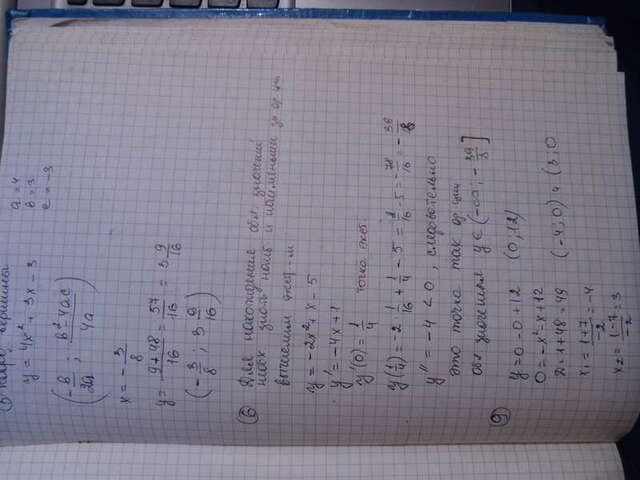 коорд вершины
y = 4x² + 3x - 3
a = 4
b = 3
c = -3
(-b/2a ; b²-4ac/4a)
x = -3/8
y = 9+48/16 = 57/16 = 3 9/16
(-3/8 ; 3 9/16)
⑥ Для нахождения обл значений
необх знать наиб и наименьш зн ф-ции
вычислим экстр-м
y = -2x² + x - 5
y' = -4x + 1
y'(0) = 1/4 точка экст.
y(1/4) = -2 1/16 + 1/4 - 5 = 2/16 - 5 = -78/16 = -39/8
y'' = -4 < 0 , следовательно
это точка max ф-ции
обл значения y ∈ (-∞; -39/8]
⑨
y = 0 - 0 + 12 (0, 12)
0 = -x² - x + 12
D = 1 + 48 = 49 (-4; 0) и (3; 0
x₁ = 1+7/-2 = -4
x₂ = 1-7/-2 = 3